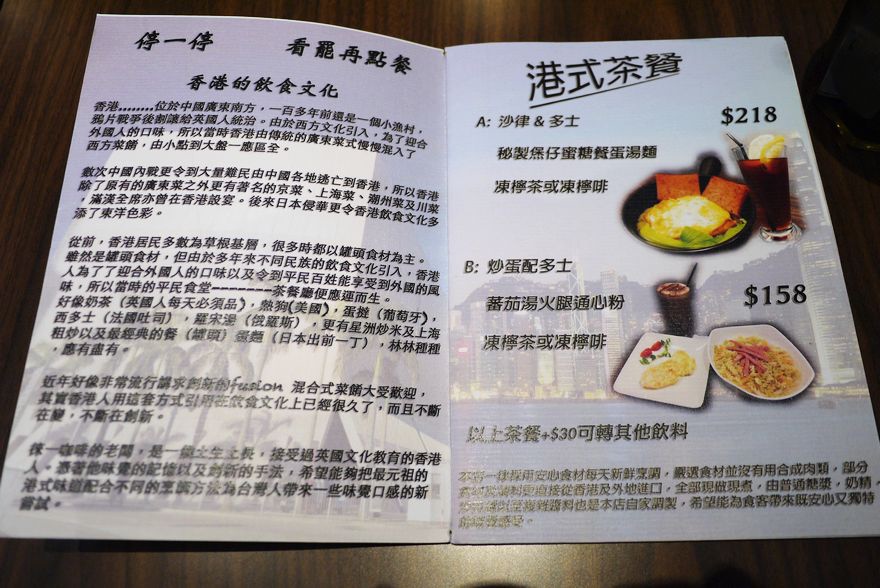 停一停 看罷再點餐
香港的飲食文化
香港........位於中國廣東南方，一百多年前還是一個小漁村，
鴉片戰爭後割讓給英國人統治。由於西方文化引入，為了迎合
外國人的口味，所以當時香港由傳統的廣東菜式慢慢混入了
西方菜餚，由小點到大盤一應區全。
數次中國內戰更令到大量難民由中國各地逃亡到香港，所以香港
除了原有的廣東菜之外更有著名的京菜、上海菜、潮州菜及川菜
，滿漢全席亦曾在香港設宴。後來日本侵華更令香港飲食文化多
添了東洋色彩。
從前，香港居民多數為草根基層，很多時都以罐頭食材為主。
雖然是罐頭食材，但由於多年來不同民族的飲食文化引入，香港
人為了了迎合外國人的口味以及令到平民百姓能享受到外國的風
味，所以當時的平民食堂-------茶餐廳便應運而生。
好像奶茶（英國人每天必須品），熱狗(美國)，蛋撻（葡萄牙），
西多士（法國吐司），羅宋湯（俄羅斯），更有星洲炒米及上海
粗炒以及最經典的餐（罐頭）蛋麵（日本出前一丁），林林種種
，應有盡有。
近年好像非常流行講求創新的fusion 混合式菜餚大受歡迎，
其實香港人用這套方式引用在飲食文化上已經很久了，而且不斷
在變，不斷在創新。
一咖啡的老闆，是一個土生土長，接受過英國文化教育的香港
人。憑著他味覺的記憶以及創新的手法，希望能夠把最元祖的
港式味道配合不同的烹調方法為台灣人帶來一些味覺口感的新
嘗試。
港式茶餐
A: 沙律 & 多士 $218
秘製煲仔蜜糖餐蛋湯麵
凍檸茶或凍檸啡
B: 炒蛋配多士
$158
蕃茄湯火腿通心粉
凍檸茶或凍檸啡
以上茶餐+$30可轉其他飲料
本店一律採用安心食材每天新鮮烹調，嚴選食材並沒有用合成肉類，部分
更直接從香港及外地進口，全部現做現煮，由普通糖漿，奶精，
醬料也是本店自家調製，希望能為食客帶來既安心又獨特